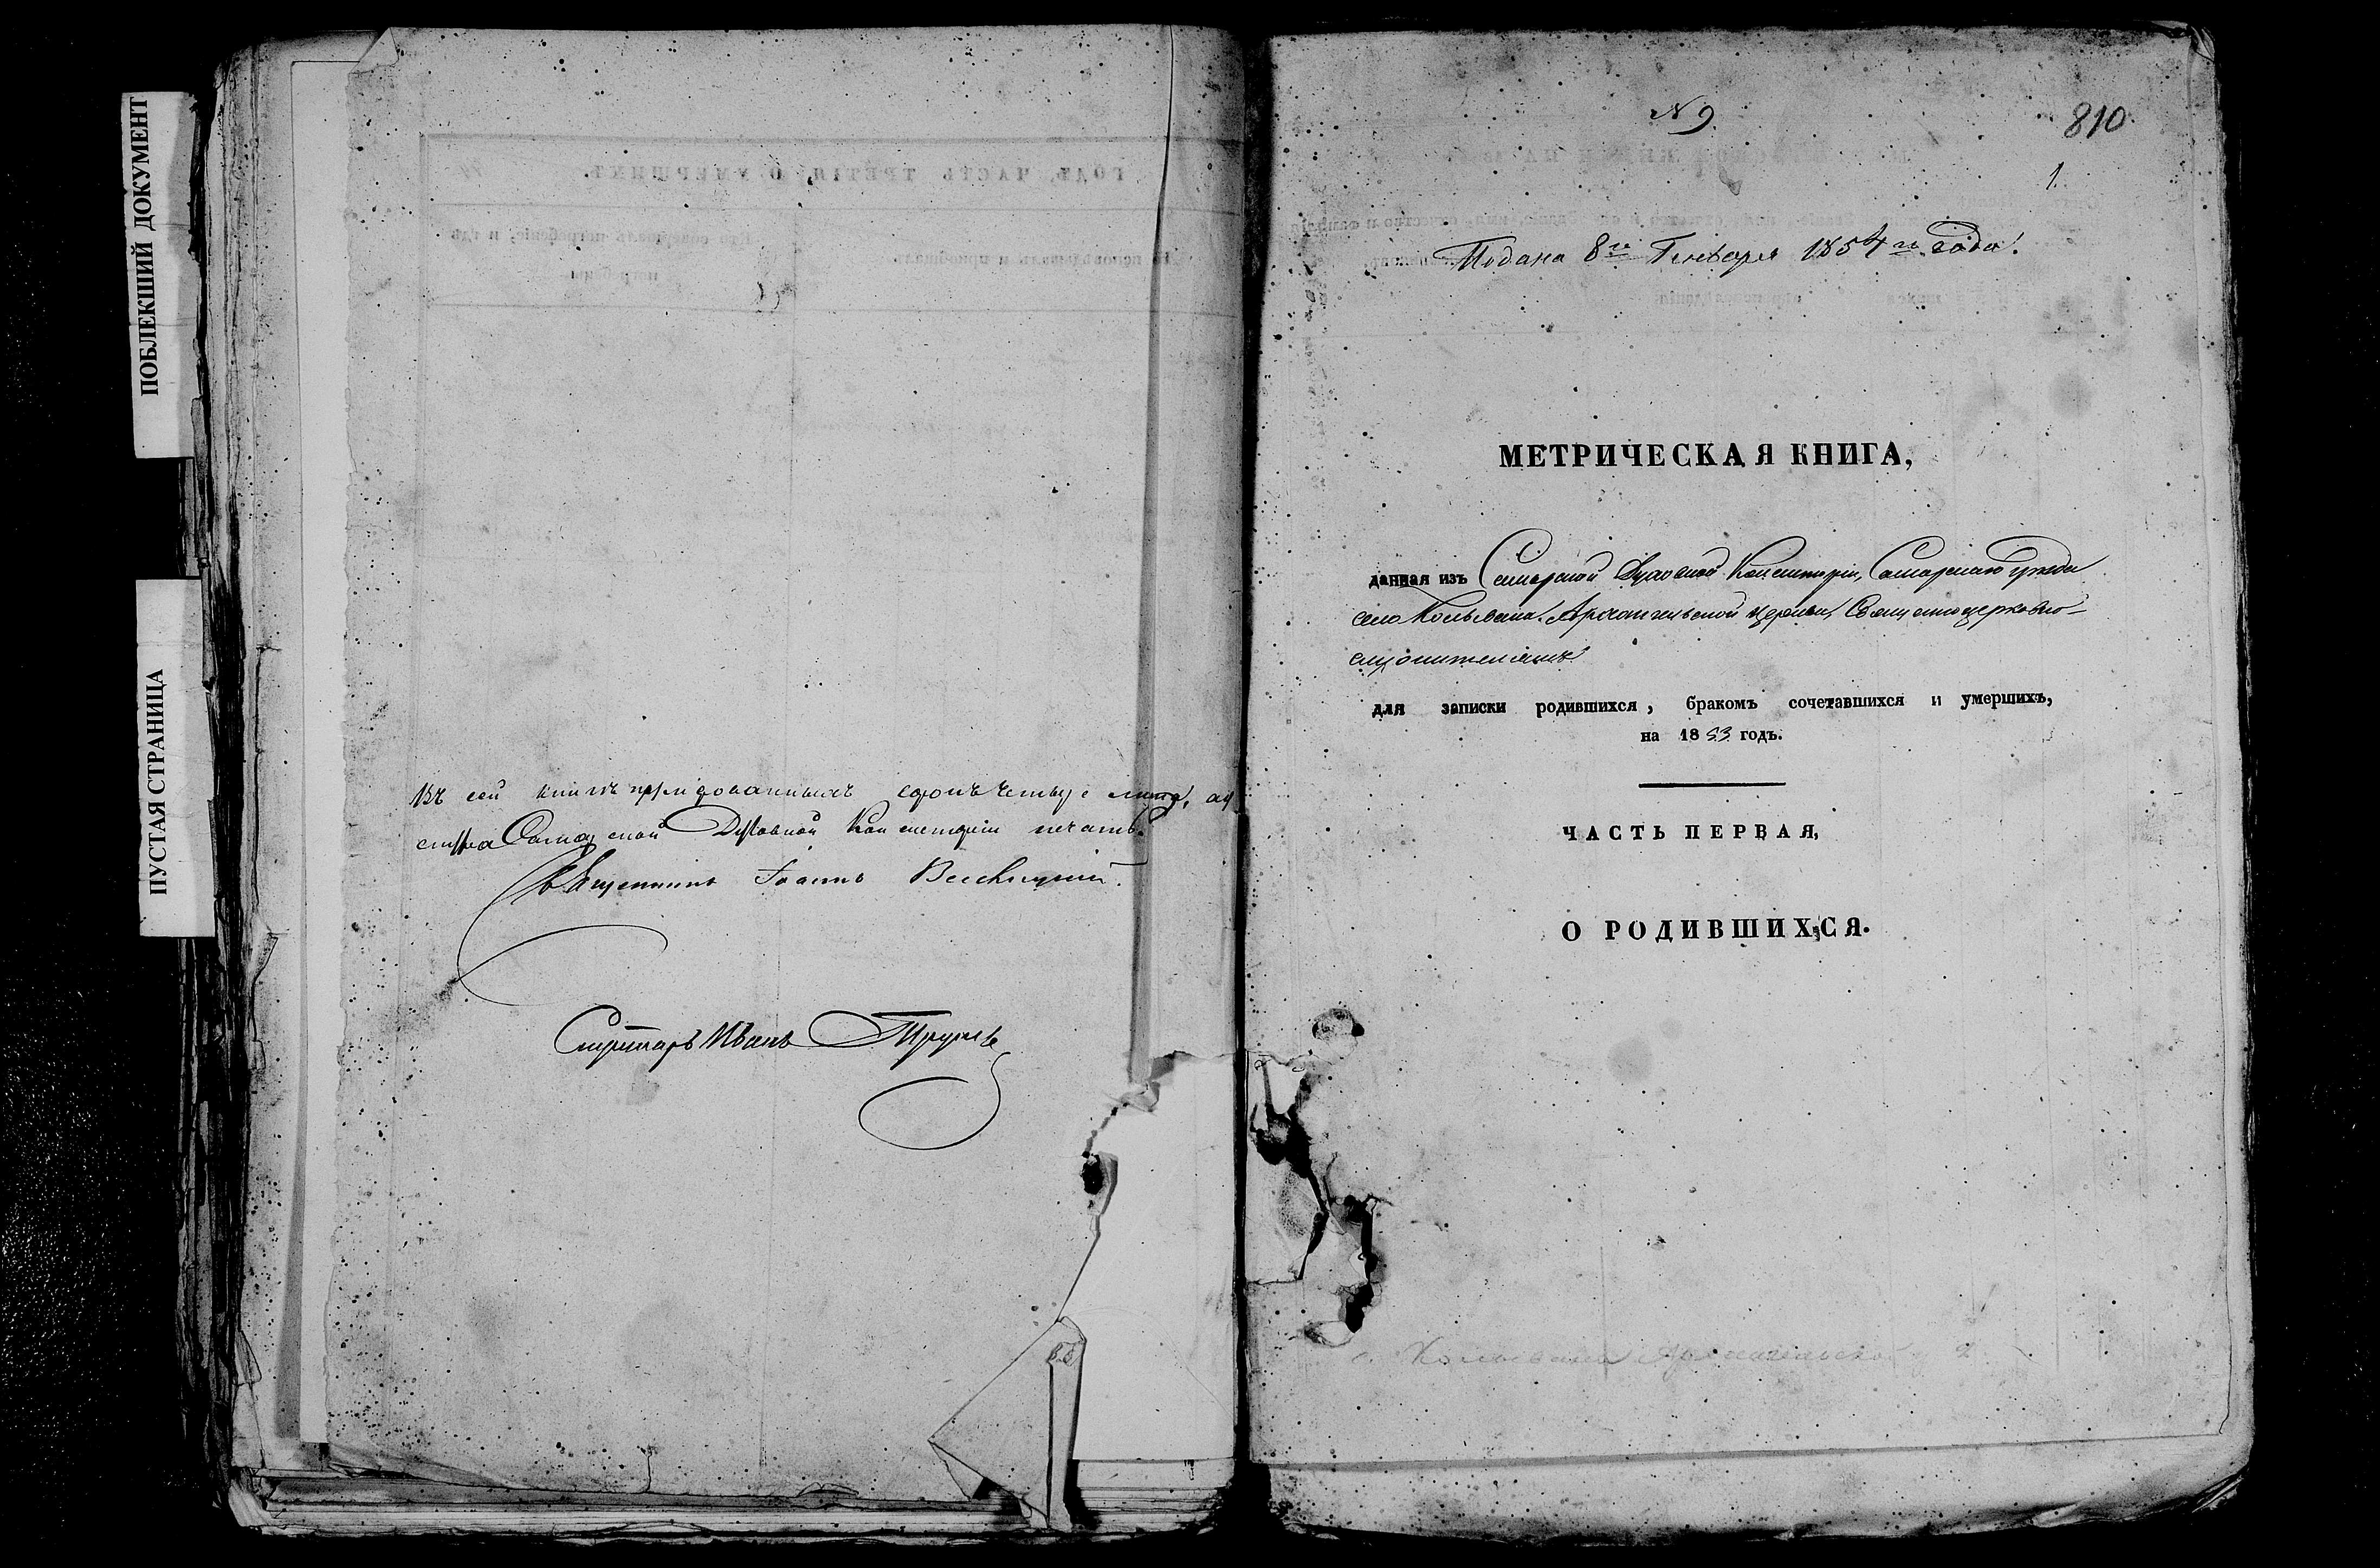 ПОБЛЕКШИЙ ДОКУМЕНТ
ПУСТАЯ СТРАНИЦА
ГОДЪ, ЧАСТЬ ТРЕТІЯ, О УМЕРШИХЪ.
Въ сей книгѣ нумерованныхъ сорокъ четыре листа,
Самарской Духовной Консисторіи печать.
Священникъ Іоаннъ
Секретарь Иванъ
№ 9.
810
1.
Подана 8го Генваря 1854го года.
МЕТРИЧЕСКАЯ КНИГА,
данная изъ Самарской Духовной Консисторіи, Самарскаго уѣзда
села Колывана Архангельской церкви, Священноцерковно-
служителямъ
для записки родившихся, бракомъ сочетавшихся и умершихъ,
на 1853 годъ.
ЧАСТЬ ПЕРВАЯ,
О РОДИВШИХСЯ.
с. Колывана Архангельской